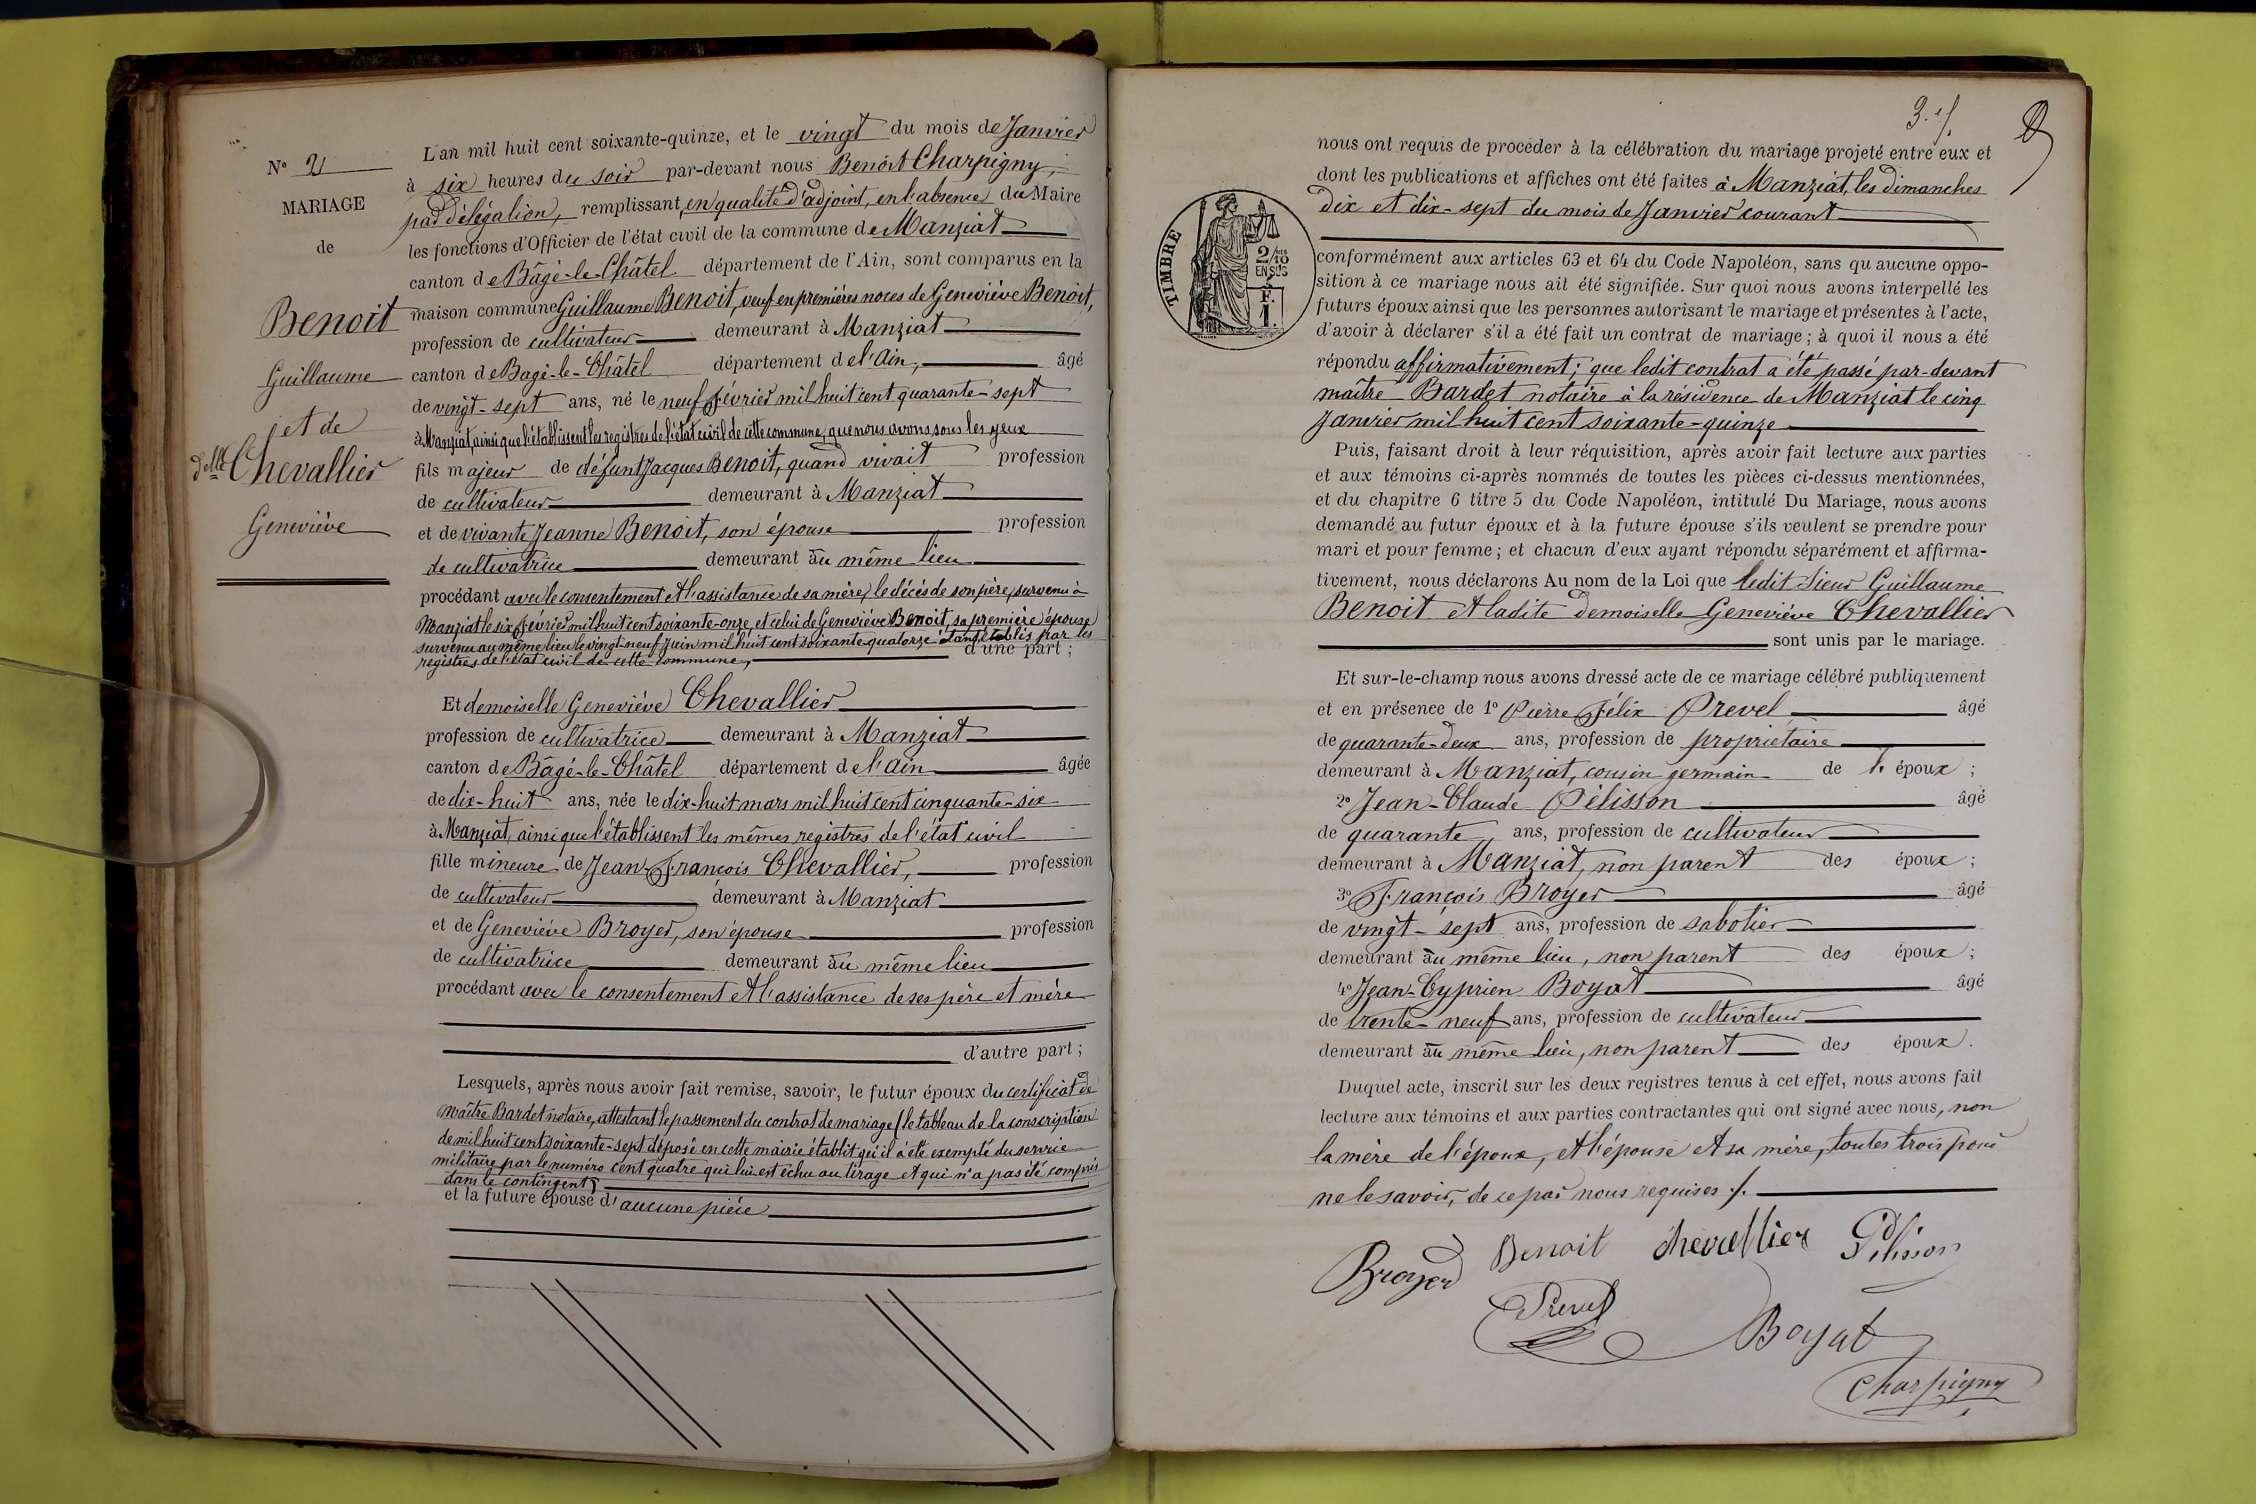 N° 2
MARIAGE
de
Benoit
Guillaume
et de
dlle Chevallier
Geneviève
L'an mil huit cent soixante-quinze, et le vingt du mois de Janvier
à six heures du soir par-devant nous Benoît Charpigny,
par délégation, remplissant, en qualité d'adjoint, en l'absence du Maire
les fonctions d'Officier de l'état civil de la commune de Manziat
canton de Bâgé-le-Châtel département de l'Ain, sont comparus en la
maison commune Guillaume Benoit, veuf en premières noces de Geneviève Benoit,
profession de cultivateur demeurant à Manziat
canton de Bagé-le-Châtel département de l'Ain, âgé
de vingt-sept ans, né le neuf Février mil huit cent quarante-sept
à Manziat, ainsi que l'établissent les registres de l'état civil de cette commune, que nous avons sous les yeux
fils majeur de défunt Jacques Benoit, quand vivait profession
de cultivateur demeurant à Manziat
et de vivante Jeanne Benoit, son épouse profession
de cultivatrice demeurant au même lieu
procédant avec le consentement et l'assistance de sa mère, le décès de son père, survenu à
Manziat le six Février mil huit cent soixante-onze, et celui de Geneviève Benoit, sa première épouse
survenu au même lieu le vingt-neuf Juin mil huit cent soixante-quatorze étant établis par les
registres de l'état civil de cette commune, d'une part ;
Et demoiselle Geneviève Chevallier
profession de cultivatrice demeurant à Manziat
canton de Bâgé-le-Châtel département de l'Ain âgée
de dix-huit ans, née le dix-huit mars mil huit cent cinquante-six
à Manziat, ainsi que l'établissent les mêmes registres de l'état civil
fille mineure de Jean-François Chevallier, profession
de cultivateur demeurant à Manziat
et de Geneviève Broyer, son épouse profession
de cultivatrice demeurant au même lieu
procédant avec le consentement et l'assistance de ses père et mère
d'autre part ;
Lesquels, après nous avoir fait remise, savoir, le futur époux du certificat de
Maître Bardet notaire, attestant le passement du contrat de mariage (le tableau de la conscription
de mil huit cent soixante-sept déposé en cette mairie établit qu'il a été exempté du service
militaire par le numéro cent quatre qui lui est échu au tirage et qui n'a pas été compris
dans le contingent)
et la future épouse d'aucune pièce
3.ef.
nous ont requis de procéder à la célébration du mariage projeté entre eux et
dont les publications et affiches ont été faites à Manziat, les dimanches
dix et dix-sept du mois de Janvier courant
TIMBRE
2/10
EN SUS
F.
1.
conformément aux articles 63 et 64 du Code Napoléon, sans qu'aucune oppo-
sition à ce mariage nous ait été signifiée. Sur quoi nous avons interpellé les
futurs époux ainsi que les personnes autorisant le mariage et présentes à l'acte,
d'avoir à déclarer s'il a été fait un contrat de mariage ; à quoi il nous a été
répondu affirmativement ; que ledit contrat a été passé par-devant
maître Bardet notaire à la résidence de Manziat le cinq
Janvier mil huit cent soixante-quinze
Puis, faisant droit à leur réquisition, après avoir fait lecture aux parties
et aux témoins ci-après nommés de toutes les pièces ci-dessus mentionnées,
et du chapitre 6 titre 5 du Code Napoléon, intitulé Du Mariage, nous avons
demandé au futur époux et à la future épouse s'ils veulent se prendre pour
mari et pour femme ; et chacun d'eux ayant répondu séparément et affirma-
tivement, nous déclarons Au nom de la Loi que ledit Sieur Guillaume
Benoit et ladite demoiselle Geneviève Chevallier
sont unis par le mariage.
Et sur-le-champ nous avons dressé acte de ce mariage célébré publiquement
et en présence de 1° Pierre Félix Prevel âgé
de quarante-deux ans, profession de propriétaire
demeurant à Manziat, cousin germain de l' époux ;
2° Jean-Claude Pélisson âgé
de quarante ans, profession de cultivateur
demeurant à Manziat, non parent des époux ;
3° François Broyer âgé
de vingt-sept ans, profession de sabotier
demeurant au même lieu, non parent des époux ;
4° Jean-Cyprien Boyat âgé
de trente-neuf ans, profession de cultivateur
demeurant au même lieu, non parent des époux.
Duquel acte, inscrit sur les deux registres tenus à cet effet, nous avons fait
lecture aux témoins et aux parties contractantes qui ont signé avec nous, non
la mère de l'époux, et l'épouse et sa mère, toutes trois pour
ne le savoir, de ce par nous requises ./.
Broyer Benoit chevallier Pelisson
Prevel
Boyat
Charpigny